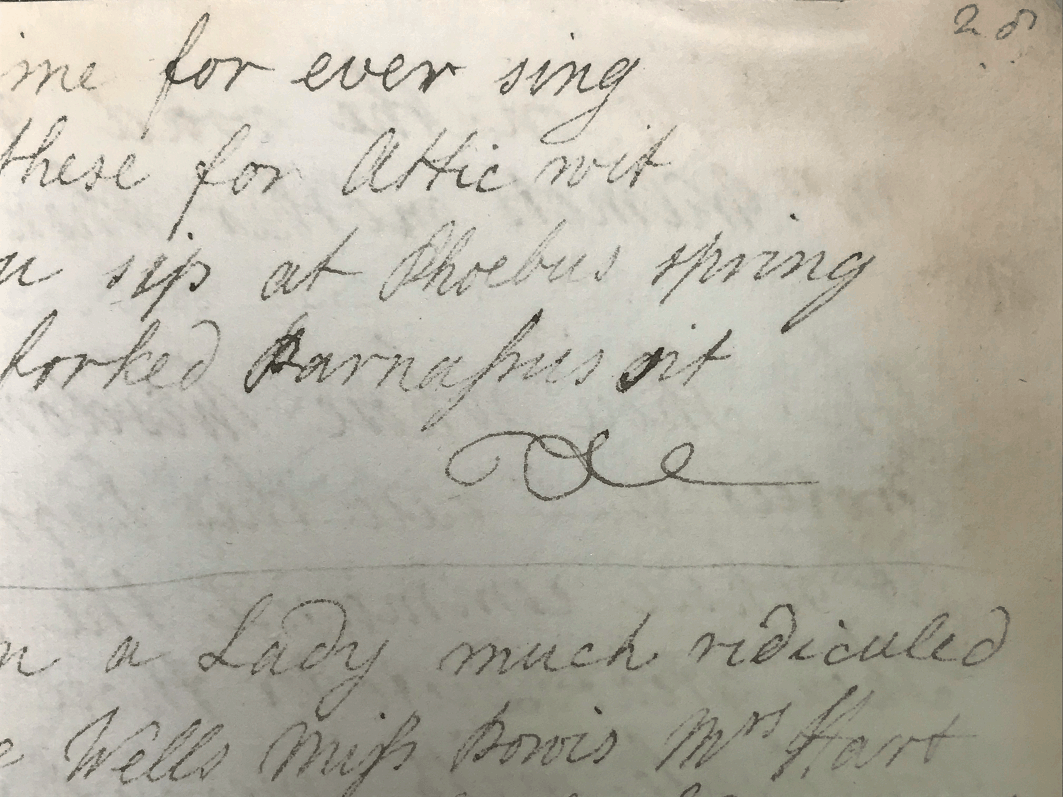 28
me for ever sing
these for Attic wit
sip at Phoebus spring
forked Parnaſsus sit
n a Lady much ridiculed
e Wells Miſs Bowis Mrs Hart